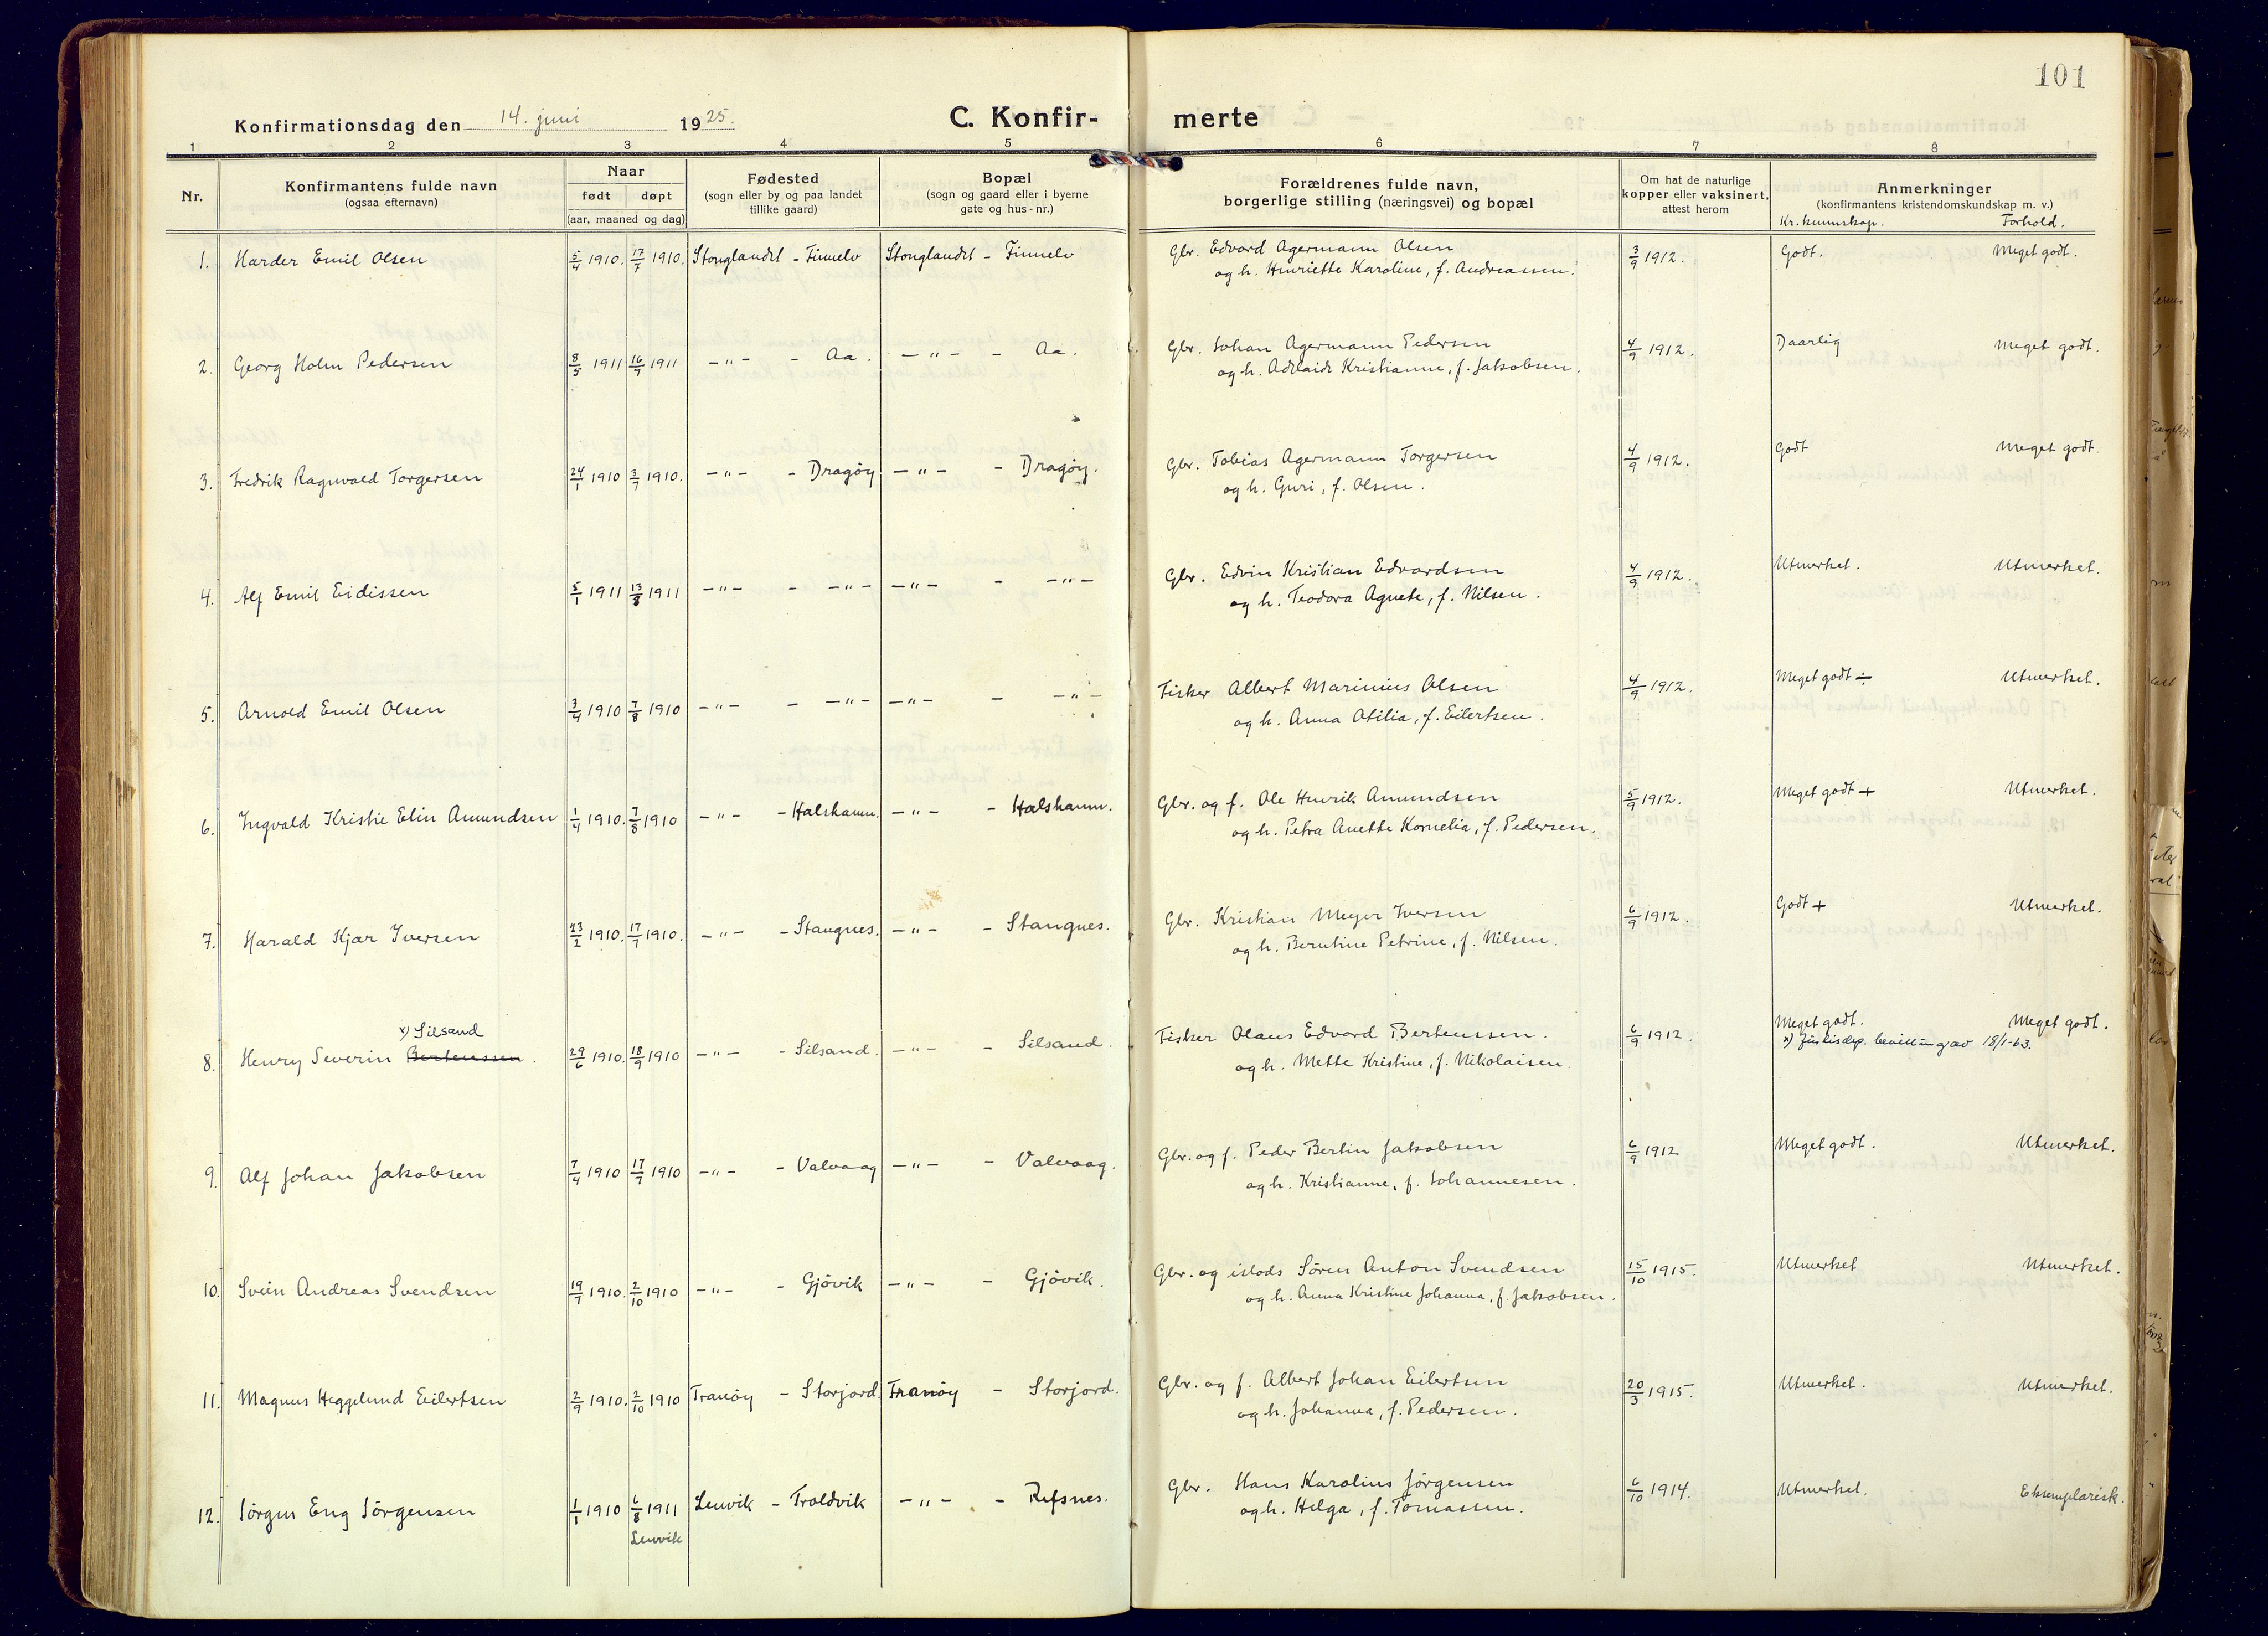 101
Konfirmationsdag den 14. juni 1925.
C. Konfir-merte
1 2 3 4 5 6 7 8
Nr.
Konfirmantens fulde navn
(ogsaa efternavn)
Naar
født døpt
(aar, maaned og dag)
Fødested
(sogn eller by og paa landet
tillike gaard)
Bopæl
(sogn og gaard eller i byerne
gate og hus-nr.)
Forældrenes fulde navn,
borgerlige stilling (næringsvei) og bopæl
Om hat de naturlige
kopper eller vaksinert,
attest herom
Anmerkninger
(konfirmantens kristendomskundskap m. v.)
Kr. kunnskap. Forhold.
1. Harder Emil Olsen 5/4 1910. 17/7 1910. Stonglandet - Finnelv Stonglandet - Finnelv Gbr. Edvard Agermann Olsen 3/9 1912. Godt. Meget godt.
og h. Henriette Karoline, f. Andreassen.
2. Georg Holm Pedersen 8/5 1911 16/7 1911 -"- - Aa. -"- - Aa. Gbr. Johan Agermann Pedersen 4/9 1912. Daarlig Meget godt.
og h. Adelaide Kristianne, f. Jakobsen.
3. Fredrik Ragnvald Torgersen 24/1 1910 3/7 1910. -"- - Dragöy -"- - Dragöy. Gbr. Tobias Agermann Torgersen 4/9 1912. Godt Meget godt.
og h. Guri, f. Olsen.
4. Alf Emil Eidissen 5/1 1911 13/8 1911 -"- - -"- -"- - -"- Gbr. Edvin Kristian Edvardsen 4/9 1912. Utmerket. Utmerket.
og h. Teodora Agnete, f. Nilsen.
5. Arnold Emil Olsen 3/4 1910 7/8 1910 -"- - -"- -"- - -"- Fisker Albert Marinius Olsen 4/9 1912. Meget godt ÷ Utmerket.
og h. Anna Otilia, f. Eilertsen.
6. Ingvald Kristie Elin Amundsen 1/4 1910. 7/8 1910 -"- - Halshamn. -"- - Halshamn. Gbr. og f. Ole Henrik Amundsen 5/9 1912. Meget godt + Utmerket.
og h. Petra Anette Kornelia, f. Pedersen.
7. Harald Kjær Iversen 23/2 1910. 17/7 1910. -"- - Stangnes. -"- - Stangnes. Gbr. Kristian Meyer Iversen 6/9 1912. Godt + Utmerket.
og h. Berntine Petrine, f. Nilsen.
x) Silsand
8. Henry Severin Berteussen. 29/6 1910. 18/9 1910 -"- - Silsand. -"- - Silsand. Fisker Olaus Edvard Berteussen. 6/9 1912. Meget godt. Meget godt.
x) Justisdep. bevilling av 18/1-63.
og h. Mette Kristine, f. Nikolaisen.
9. Alf Johan Jakobsen 7/4 1910 17/7 1910 -"- - Valvaag -"- - Valvaag. Gbr. og f. Peder Bertin Jakobsen 6/9 1912 Meget godt. Utmerket.
og h. Kristianne, f. Johannesen.
10. Svein Andreas Svendsen 19/7 1910. 2/10 1910 -"- - Gjövik -"- - Gjövik. Gbr. og Sören Anton Svendsen 15/10 1915. Utmerket Utmerket.
og h. Anna Kristine Johanna, f. Jakobsen.
11. Magnus Heggelund Eilertsen 2/9 1910. 2/10 1910 Tranöy - Storjord. Tranöy - Storjord. Gbr. og f. Albert Johan Eilertsen 20/3 1915. Utmerket. Utmerket.
og h. Johanna, f. Pedersen.
12. Jörgen Eng Jörgensen 1/1 1910 6/8 1911 Lenvik - Troldvik -"- - Refsnes. Gbr. Hans Karolius Jörgensen 6/10 1914. Utmerket. Eksemplarisk.
Lenvik
og h. Helga, f. Tomassen.